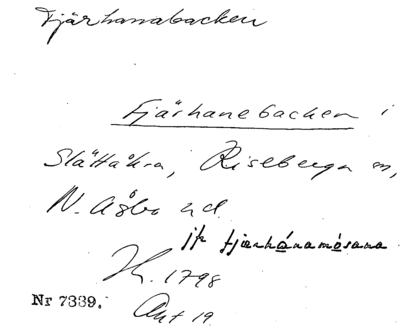 Fjärhanabacken
Fjärhanebacken i
Slättåkra, Riseberga sn,
N. Åsbo hd
jfr fjärhánamósana
Jh. 1798
Akt 19
Nr 7339.